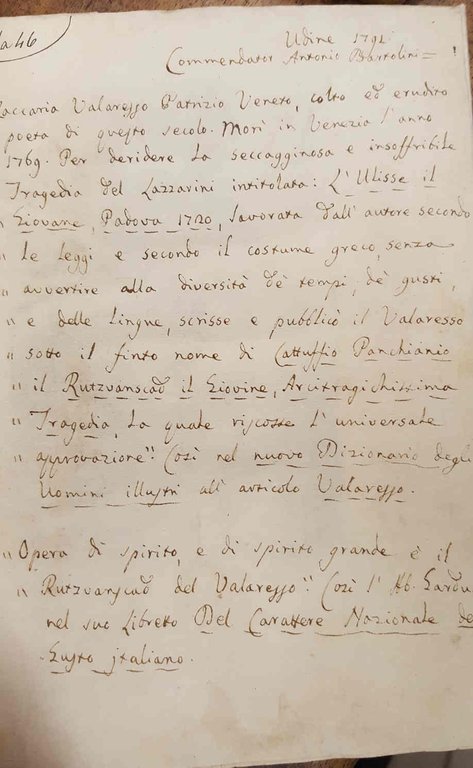 la 46
Udine 1791.
Commendator Antonio Bartolini =
Zaccaria Valaresso Patrizio Veneto, colto ed erudito
poeta di questo secolo. Morì in Venezia l'anno
1769. Per deridere la seccagginosa e insoffribile
Tragedia del Lazzarini intitolata: L'Ulisse il
" Giovane, Padova 1720, lavorata dall'autore secondo
" le leggi e secondo il costume greco, senza
" avvertire alla diversità de' tempi, de' gusti,
" e delle lingue, scrisse e pubblicò il Valaresso
" sotto il finto nome di Cattuffio Panchianio
" il Rutzvanscad il Giovine, Arcitragichissima
" Tragedia, la quale riscosse l'universale
" approvazione". Così nel nuovo Dizionario degli
Uomini illustri all'articolo Valaresso.
" Opera di spirito, e di spirito grande è il
" Rutzvanscad del Valaresso". Così l'Ab. Gardu
nel suo Libretto Del Carattere Nazionale de
Gusto italiano.